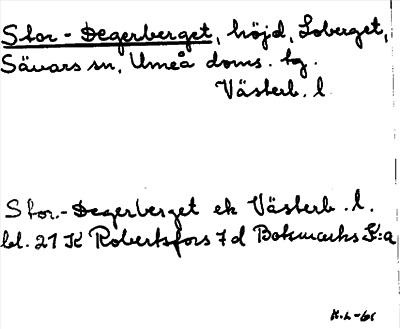 Stor-Degerberget, höjd, Loberget,
Sävars sn, Umeå doms. tg.
Västerb. l.
Stor-Degerberget ek Västerb. l.
bl. 21 K Robertsfors 7 d Botsmarks K:a